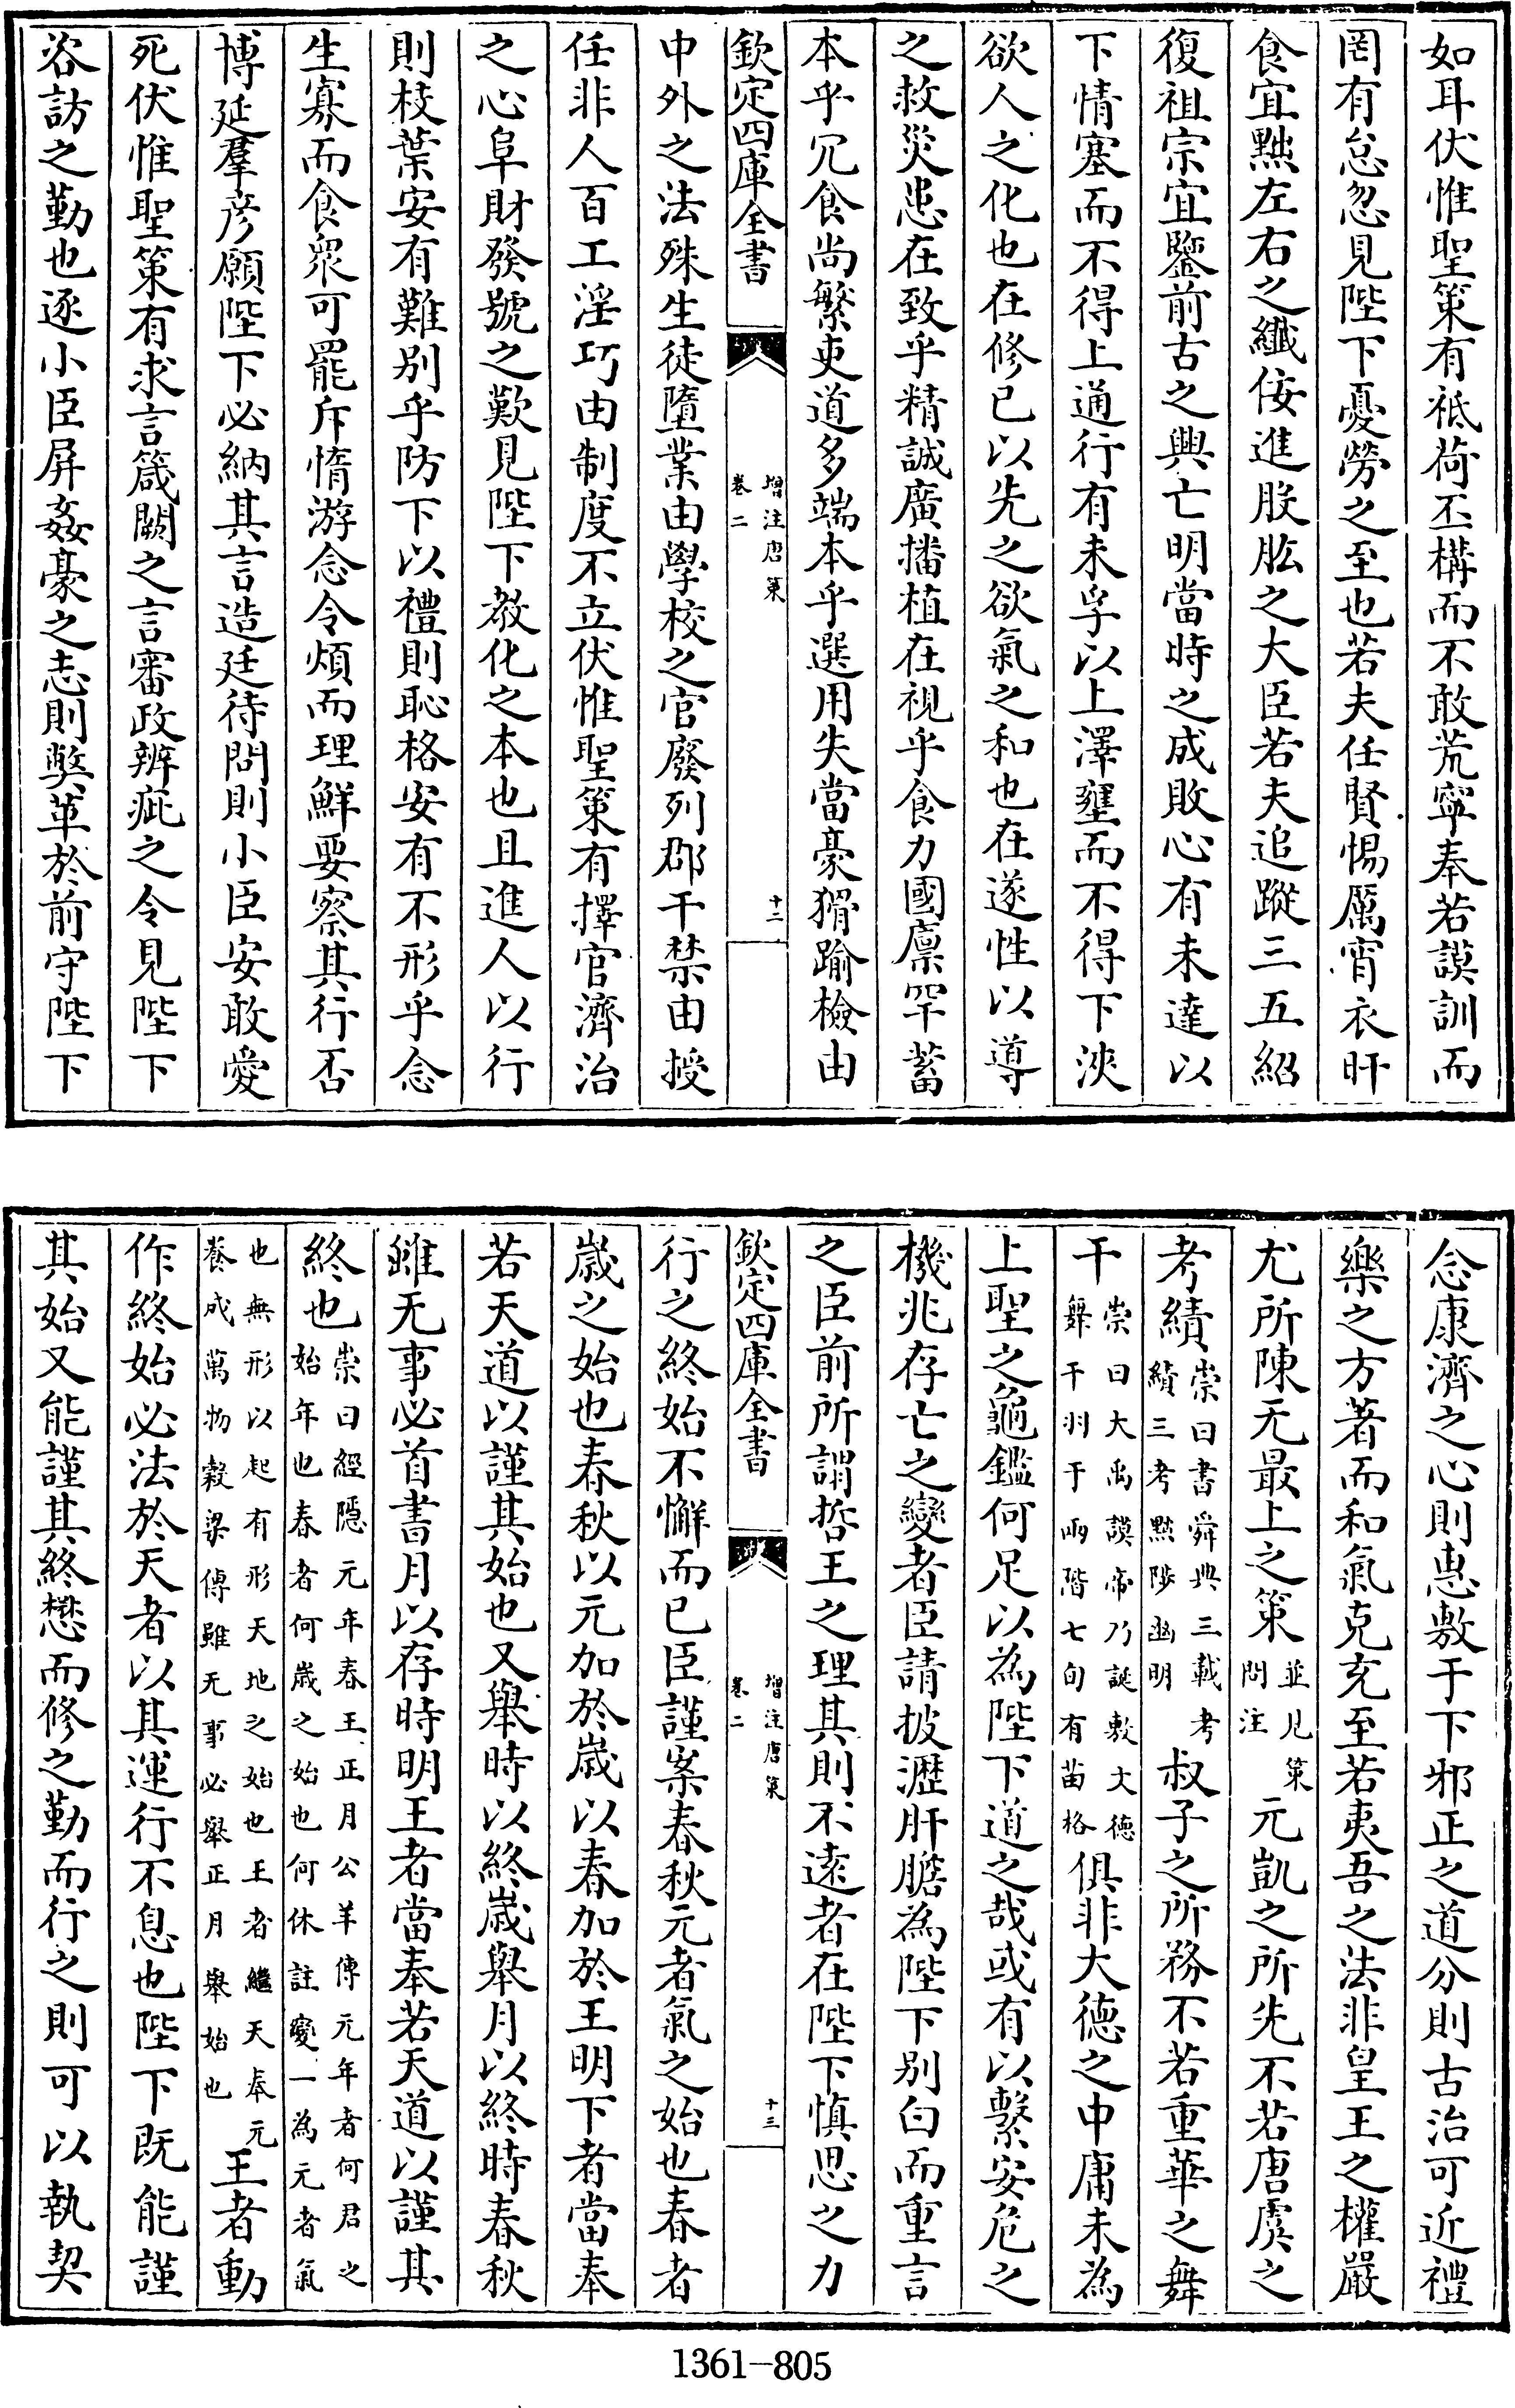 如耳伏惟聖策有祗荷丕構而不敢荒寧奉若謨訓而
罔有怠忽見陛下憂勞之至也若夫任賢惕厲宵衣旰
食宜黜左右之纖佞進股肱之大臣若夫追蹤三五紹
復祖宗宜鑒前古之興亡明當時之成敗心有未達以
下情塞而不得上通行有未孚以上澤壅而不得下浹
欲人之化也在修已以先之欲氣之和也在遂性以導
之救災患在致乎精誠廣播植在視乎食力國廪罕蓄
本乎冗食尚繁吏道多端本乎選用失當豪猾踰檢由
欽定四庫全書
增注唐策
卷二
十二
中外之法殊生徒墮業由學校之官廢列郡干禁由授
任非人百工淫巧由制度不立伏惟聖策有擇官濟治
之心阜財發號之歎見陛下教化之本也且進人以行
則枝葉安有難别乎防下以禮則恥格安有不形乎念
生寡而食衆可罷斥惰游念令煩而理鮮要察其行否
博延羣彦願陛下必納其言造廷待問則小臣安敢愛
死伏惟聖策有求言箴闕之言審政辨疵之令見陛下
咨訪之勤也逐小臣屏姦豪之志則獘革於前守陛下
念康濟之心則惠敷于下邪正之道分則古治可近禮
樂之方著而和氣克充至若夷吾之法非皇王之權嚴
尤所陳无最上之策並見策問注元凱之所先不若唐虞之
考績崇曰書舜典三載考績三考黜陟幽明叔子之所務不若重華之舞
干崇曰大禹謨帝乃誕敷文德舞干羽于兩階七旬有苗格俱非大德之中庸未為
上聖之龜鑑何足以為陛下道之哉或有以繫安危之
機兆存亡之變者臣請披瀝肝膽為陛下别白而重言
之臣前所謂哲王之理其則不逺者在陛下慎思之力
欽定四庫全書
增注唐策
卷二
十三
行之終始不懈而已臣謹案春秋元者氣之始也春者
嵗之始也春秋以元加於嵗以春加於王明下者當奉
若天道以謹其始也又舉時以終嵗舉月以終時春秋
雖无事必首書月以存時明王者當奉若天道以謹其
終也崇曰經隱元年春王正月公羊傳元年者何君之始年也春者何嵗之始也何休註變一為元者氣
也無形以起有形天地之始也王者繼天奉元養成萬物榖梁傳雖无事必舉正月舉始也王者動
作終始必法於天者以其運行不息也陛下既能謹
其始又能謹其終懋而修之勤而行之則可以執契
1361-805